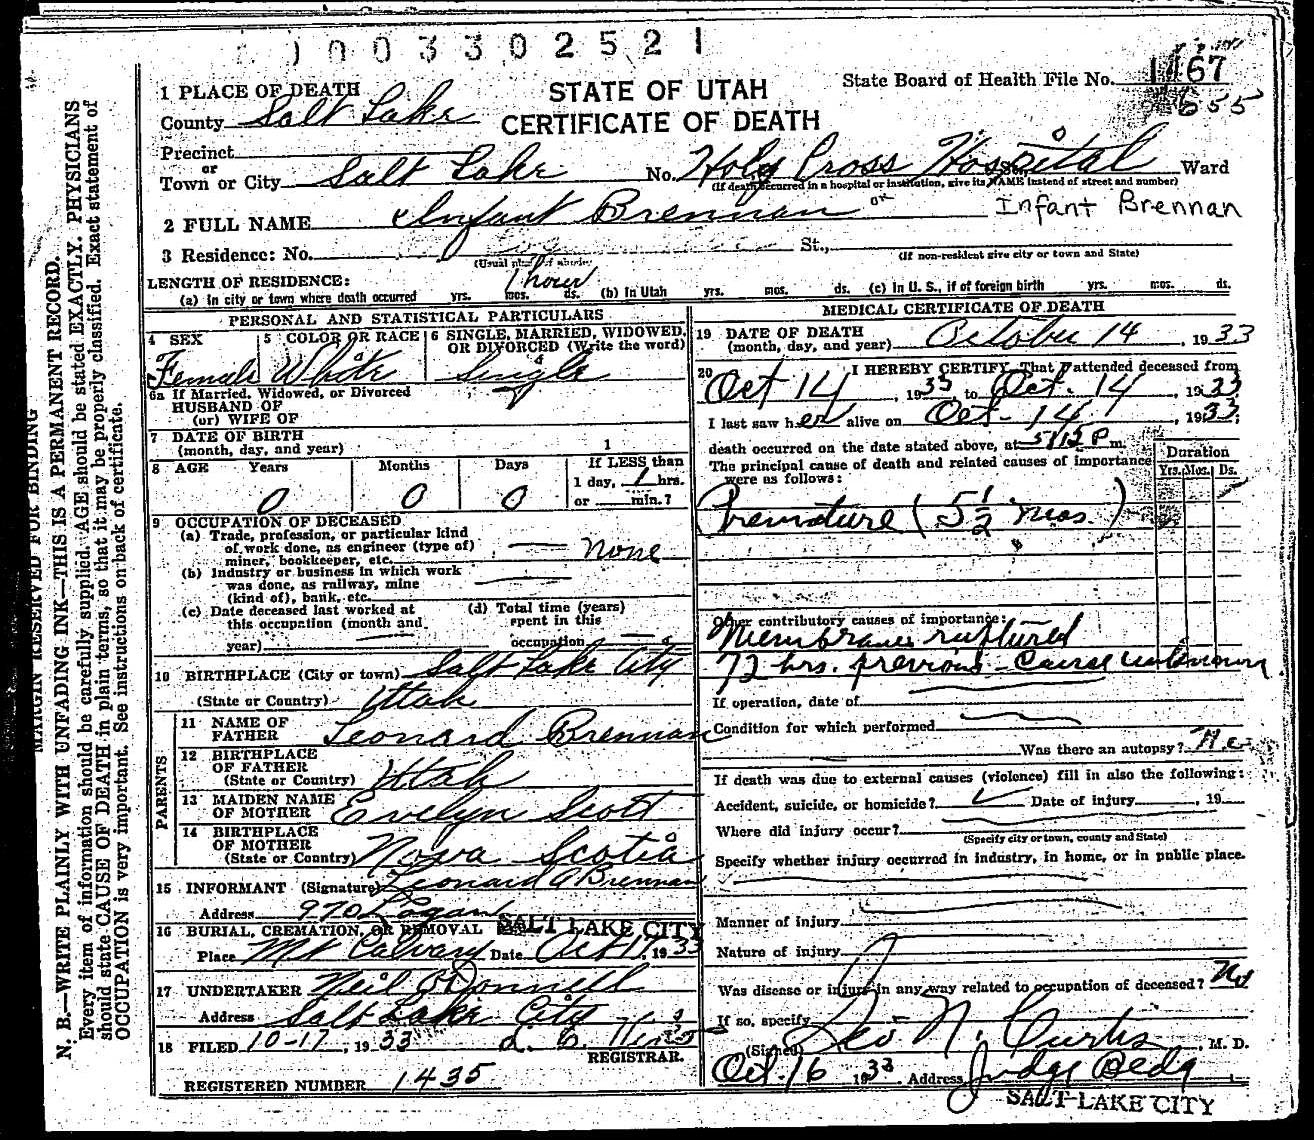 0 0 3 3 0 2 5 2 1
STATE OF UTAH
CERTIFICATE OF DEATH
State Board of Health File No. 1167
655
1 PLACE OF DEATH
County Salt Lake
Precinct
or
Town or City Salt Lake No. Holy Cross Hospital Ward
(If death occurred in a hospital or institution, give its NAME instead of street and number)
2 FULL NAME Infant Brennan or Infant Brennan
3 Residence: No. St.,
(Usual place of abode) (If non-resident give city or town and State)
LENGTH OF RESIDENCE: 1 hour
(a) In city or town where death occurred yrs. mos. ds. (b) In Utah yrs. mos. ds. (c) In U. S., if of foreign birth yrs. mos. ds.
PERSONAL AND STATISTICAL PARTICULARS
4 SEX Female
5 COLOR OR RACE White
6 SINGLE, MARRIED, WIDOWED,
OR DIVORCED (Write the word)
Single
6a If Married, Widowed, or Divorced
HUSBAND OF
(or) WIFE OF
7 DATE OF BIRTH
(month, day, and year) 1
8 AGE Years Months Days If LESS than
0 0 0 1 day, 1 hrs.
or min.?
9 OCCUPATION OF DECEASED
(a) Trade, profession, or particular kind
of work done, as engineer (type of)
miner, bookkeeper, etc. none
(b) Industry or business in which work
was done, as railway, mine
(kind of), bank, etc.
(c) Date deceased last worked at
this occupation (month and
year)
(d) Total time (years)
spent in this
occupation
10 BIRTHPLACE (City or town) Salt Lake City
(State or Country) Utah
PARENTS
11 NAME OF
FATHER Leonard Brennan
12 BIRTHPLACE
OF FATHER
(State or Country) Utah
13 MAIDEN NAME
OF MOTHER Evelyn Scott
14 BIRTHPLACE
OF MOTHER
(State or Country) Nova Scotia
15 INFORMANT (Signature) Leonard A Brennan
Address 970 Logan
SALT LAKE CITY
16 BURIAL, CREMATION, OR REMOVAL
Place Mt Calvary Date Oct 17, 1933
17 UNDERTAKER Neil O'Donnell
Address Salt Lake City
18 FILED 10-17, 1933
REGISTRAR.
REGISTERED NUMBER 1435
MEDICAL CERTIFICATE OF DEATH
19 DATE OF DEATH
(month, day, and year) October 14, 1933
20 I HEREBY CERTIFY, That I attended deceased from
Oct 14, 1933 to Oct. 14, 1933
I last saw her alive on Oct. 14, 1933;
death occurred on the date stated above, at 5:15 P m.
The principal cause of death and related causes of importance
were as follows:
Duration
Yrs. Mos. Ds.
Premature (5 1/2 mos.)
Other contributory causes of importance:
Membranes ruptured
72 hrs. previous - Cause unknown
If operation, date of
Condition for which performed
Was there an autopsy? No
If death was due to external causes (violence) fill in also the following:
Accident, suicide, or homicide? Date of injury , 19
Where did injury occur?
(Specify city or town, county and State)
Specify whether injury occurred in industry, in home, or in public place.
Manner of injury
Nature of injury
Was disease or injury in any way related to occupation of deceased? No
If so, specify
(Signed) Geo N. Curtis, M. D.
Oct. 16 1933. Address Judge Bldg
SALT LAKE CITY
MARGIN RESERVED FOR BINDING
N. B.—WRITE PLAINLY WITH UNFADING INK—THIS IS A PERMANENT RECORD.
Every item of information should be carefully supplied. AGE should be stated EXACTLY. PHYSICIANS
should state CAUSE OF DEATH in plain terms, so that it may be properly classified. Exact statement of
OCCUPATION is very important. See instructions on back of certificate.